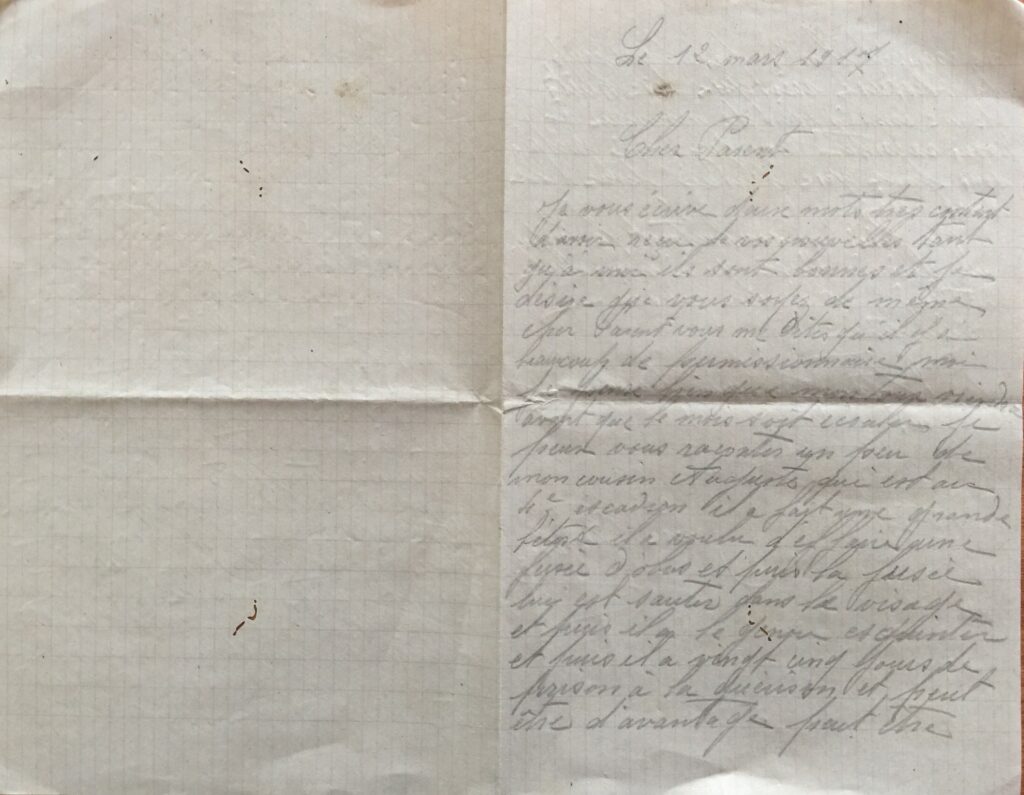 Le 12 mars 1917
Cher Parent
Je vous écrive deux mots très content
d'avoir recu de vos nouvelles tant
qu'à moi ils sont bonnes et je
désire que vous soyez de même
cher Parent vous me dites qu'il y a
beaucoup de permissionnaire mi
avant que le mois soit écouler je
peux vous racontés un peu de
mon cousin Auguste qui est au
4e escadron il a fait une grande
il a voulu défaire une
fusée d'obus et puis la fusée
lui est sauter dans le visage
et puis il a le genou esquinter
et puis il a vingt cinq jours de
prison à la et peut
être d'avantage peut être